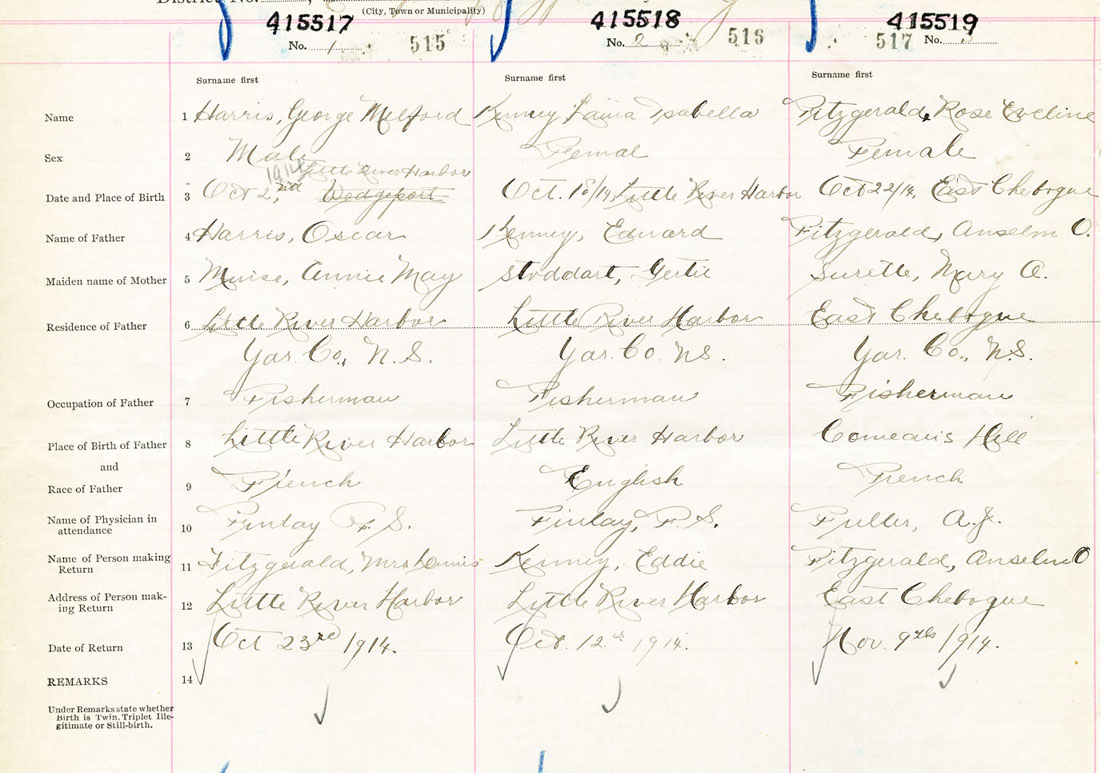 District No.
(City, Town or Municipality)
415517 415518 415519
No. 1 515 No. 2 516 517 No.
Surname first Surname first Surname first
Name 1 Harris, George Melford Kenney Laura Isabella Fitzgerald, Rose Eveline
Sex 2 Male Femal Female
1914 Little River Harbor
Date and Place of Birth 3 Oct 2nd, Wedgeport Oct. 18/14, Little River Harbor Oct 22/14, East Chebogue
Name of Father 4 Harris, Oscar Kenney, Edward Fitzgerald, Anselm O.
Maiden name of Mother 5 Muise, Annie May Stoddart, Gertie Surette, Mary A.
Residence of Father 6 Little River Harbor Little River Harbor East Chebogue
Yar. Co., N.S. Yar. Co. N.S. Yar. Co., N.S.
Occupation of Father 7 Fisherman Fisherman Fisherman
Place of Birth of Father 8 Little River Harbor Little River Harbor Comeau's Hill
and
Race of Father 9 French English French
Name of Physician in attendance 10 Finlay F. S. Finlay, F. S. Fuller, A.J.
Name of Person making Return 11 Fitzgerald, Mrs Dennis Kenney, Eddie Fitzgerald, Anselm O
Address of Person making Return 12 Little River Harbor Little River Harbor East Chebogue
Date of Return 13 Oct 23rd 1914. Oct. 12th 1914. Nov. 9th 1914.
REMARKS 14
Under Remarks state whether
Birth is Twin, Triplet Ille-
gitimate or Still-birth.